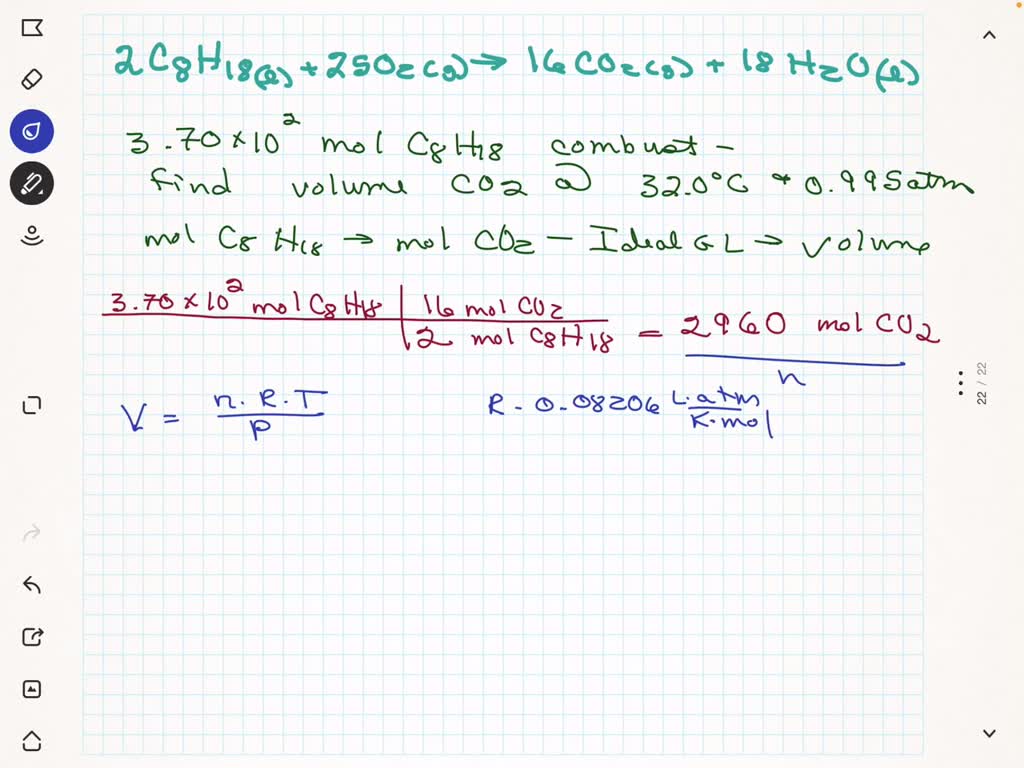 2C8H18(l) + 25O2(g) → 16CO2(g) + 18H2O(l)
3.70×10² mol C8H18 combust –
find volume CO2 @ 32.0°C + 0.995atm
mol C8H18 → mol CO2 – Ideal GL → volume
3.70×10² mol C8H18 | 16 mol CO2
2 mol C8H18 = 2960 mol CO2
n
V = n.R.T / P R - 0.08206 L.atm / K.mol
22 / 22